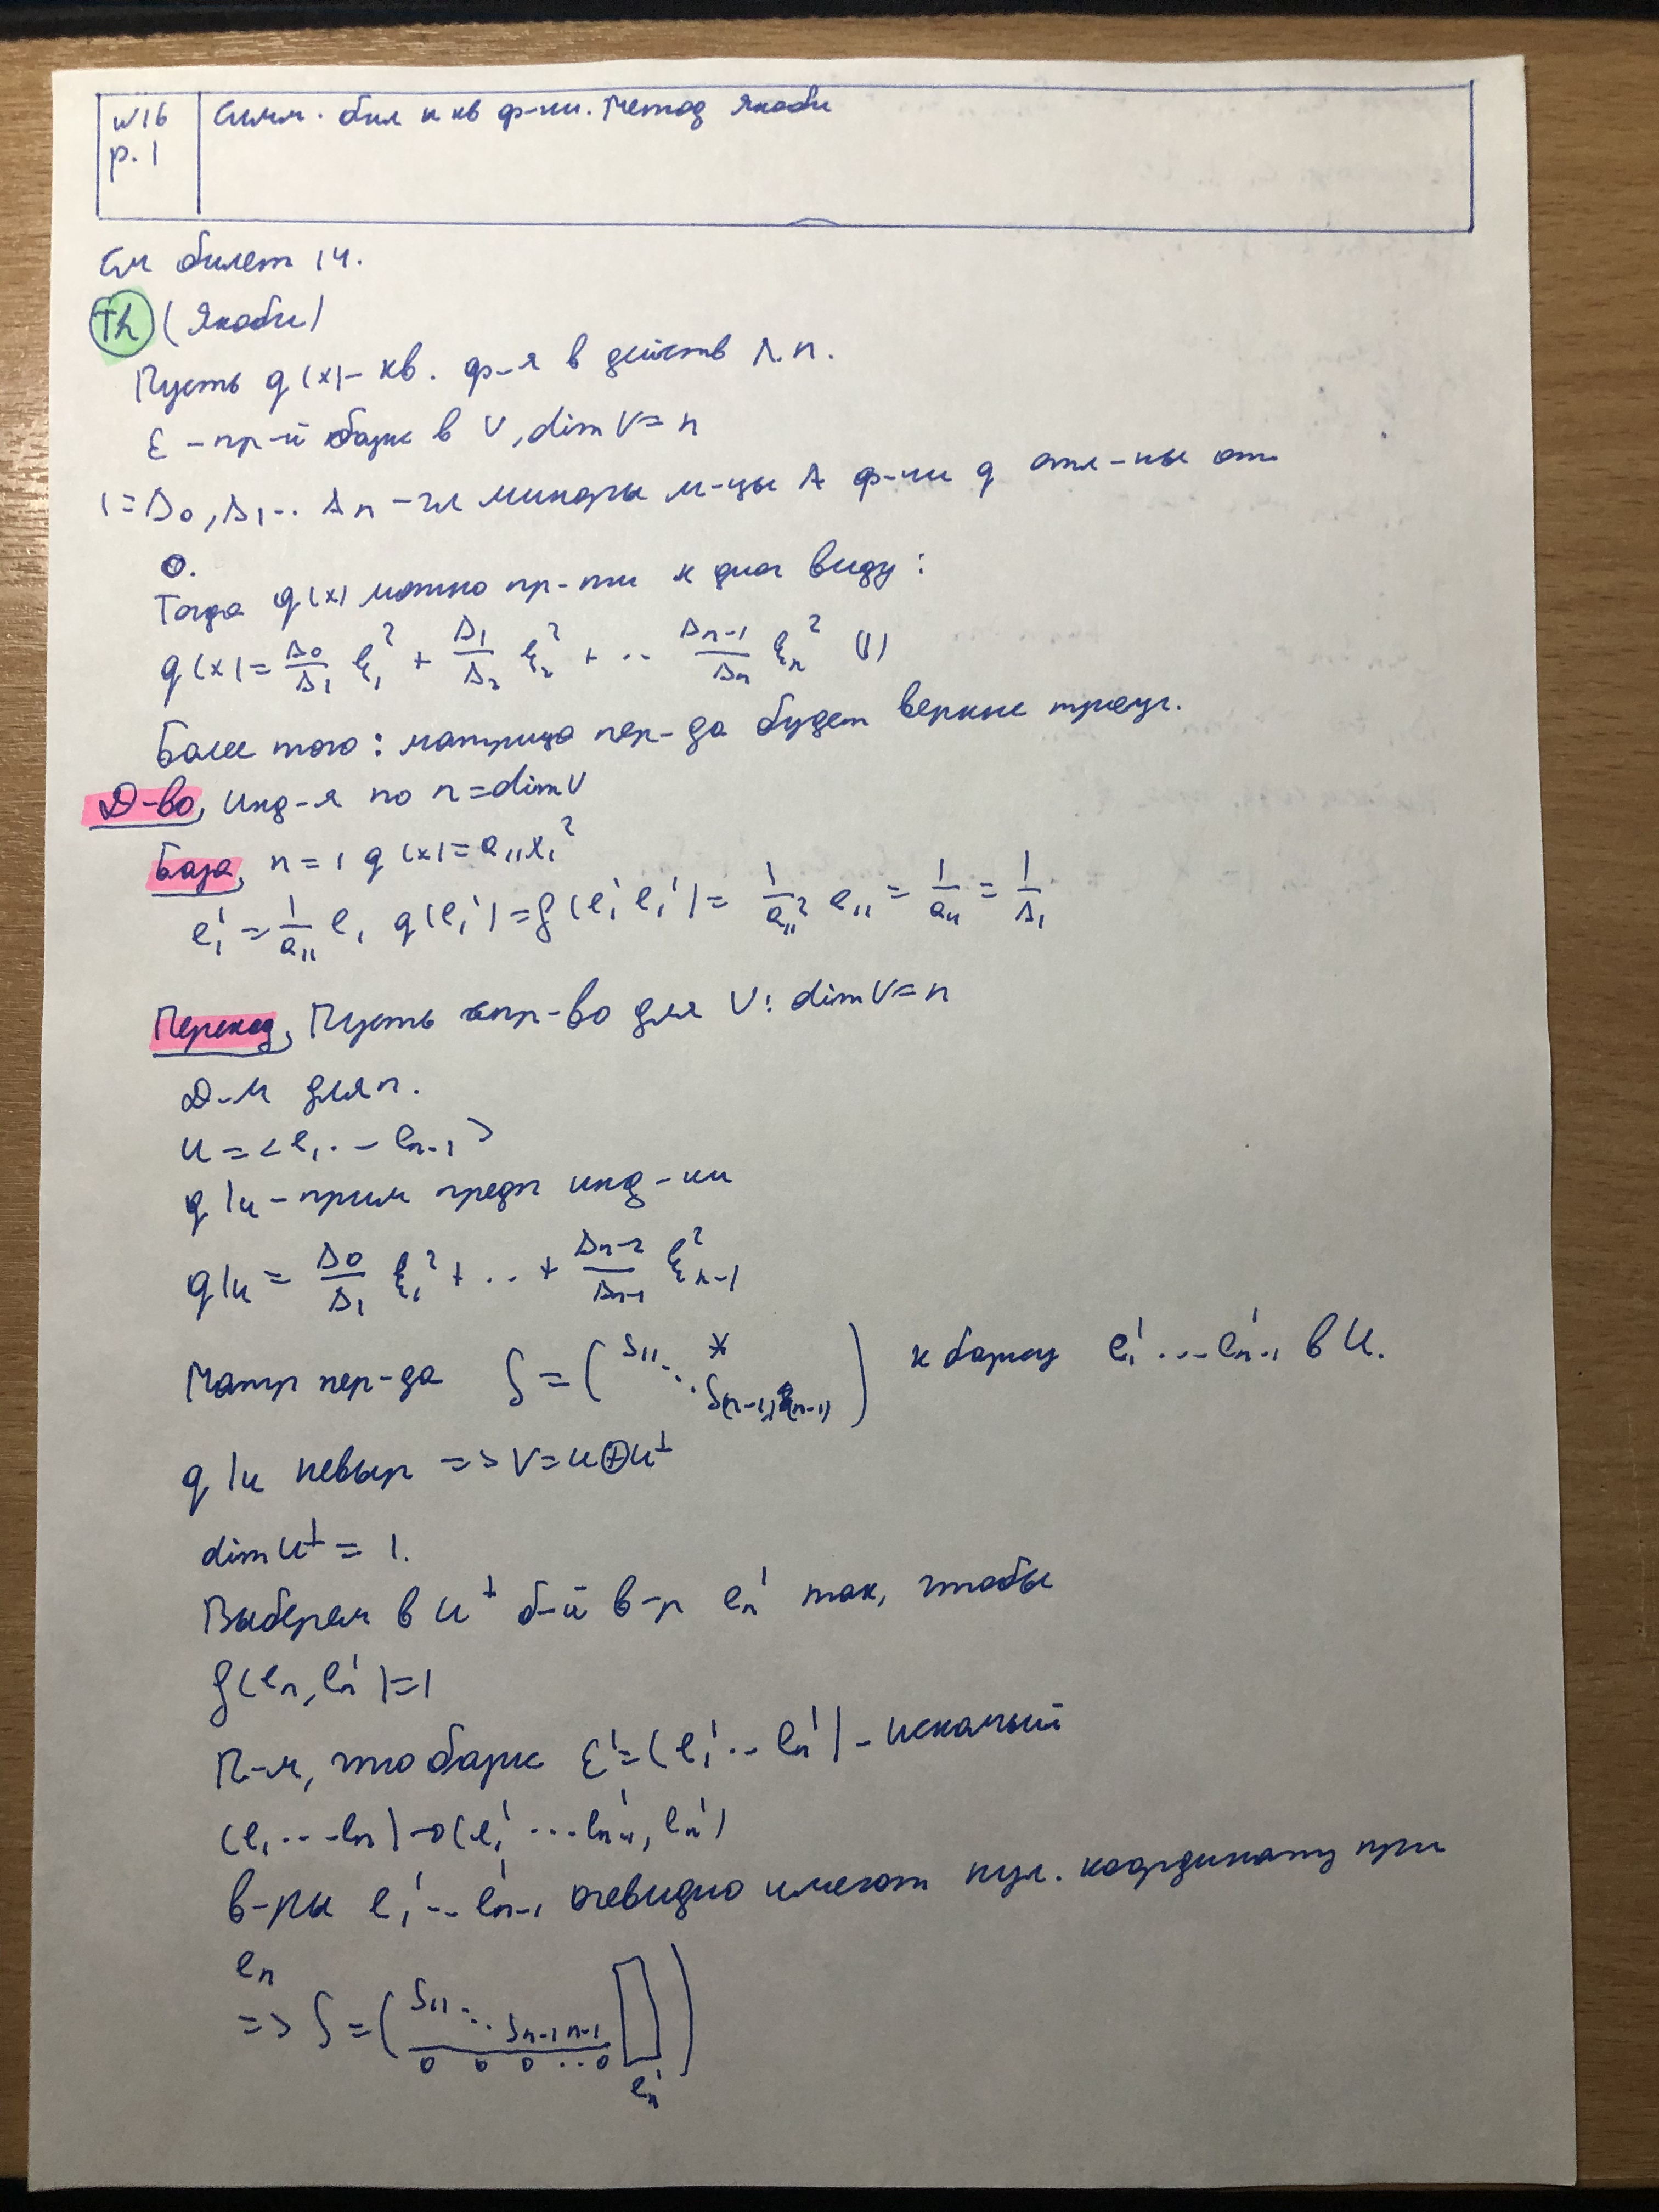 №16 Симм. бил и кв ф-ии. Метод Якоби
р. 1
См билет 14.
Th (Якоби)
Пусть q(x) – кв. ф-я в действ л.п.
ℰ – пр-й базис в V, dim V = n
1 = Δ₀, Δ₁ .. Δₙ – гл миноры м-цы A ф-ии q отл-ны от
0.
Тогда q(x) можно пр-ти к диаг виду:
q(x) = Δ₀/Δ₁ ξ₁² + Δ₁/Δ₂ ξ₂² + .. Δₙ₋₁/Δₙ ξₙ² (1)
Более того: матрица пер-да будет верхне треуг.
Д-во, инд-я по n = dim V
База, n = 1 q(x) = a₁₁x₁²
e₁' = 1/a₁₁ e₁ q(e₁') = f(e₁' e₁') = 1/a₁₁² a₁₁ = 1/a₁₁ = 1/Δ₁
Переход, Пусть спр-во для V: dim V = n
Д-м для n.
U = <e₁ .. eₙ₋₁>
q|u – прим предп инд-ии
q|u = Δ₀/Δ₁ ξ₁² + .. + Δₙ₋₂/Δₙ₋₁ ξ²ₙ₋₁
Матр пер-да S = ( S₁₁ ⋱ * S(n-1)(n-1) ) к базису e₁' ... eₙ₋₁' в U.
q|u невыр => V = U ⊕ U^⊥
dim U^⊥ = 1.
Выберем в U^⊥ б-й в-р eₙ' так, чтобы
f(eₙ, eₙ') = 1
П-м, что базис ℰ' = (e₁' .. eₙ') – искомый
(e₁ ... eₙ) → (e₁' ... eₙ₋₁', eₙ')
в-ры e₁' .. eₙ₋₁' очевидно имеют нул. координату при
eₙ
=> S = ( S₁₁ ⋱ Sₙ₋₁ ₙ₋₁ )
0 0 0 .. 0
eₙ'